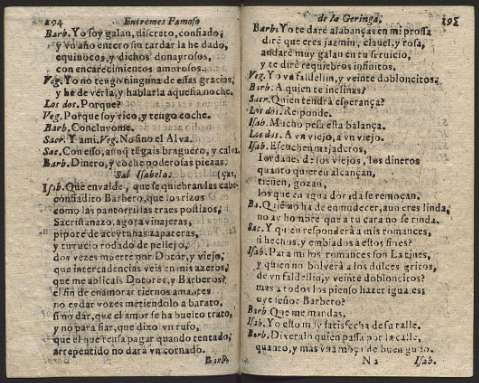 294 Entremes Famoso
Barb. Yo soy galan, discreto, confiado,
y vn año entero sin cardar la he dado,
equiuocos, y dichos donayrosos,
con encarecimientos amorosos.
Veg. Yo no tengo ninguna de essas gracias,
y he de verla, y hablarla aquesta noche.
Los dos. Porque?
Veg. Porque soy rico, y tengo coche.
Barb. Concluyome.
Sacr. Y a mi. Veg. No fino el Alva.
Sac. Con esso, aunque tẽgais braguero, y calua.
Barb. Dinero, y coche poderosas piezas.
Sale Isabela.
Isab. Que en valde, que se quiebran las cabeças,
confiadico Barbero, que los rizos
como las pantorrillas traes postizos;
Sacristanazo, agora vinajeras,
pipote de aceytunas zapateras,
y turucio rodado de pellejo,
dos vezes muerte por Dotor, y viejo,
que intercadencias veis en mis azeros,
que me aplicais Dotores, y Barberos?
el fin de enamorar tiernos amantes
no es dar vozes metiendolo a barato,
si no dar, que el amor se ha buelto trato,
y no para fiar, que dixo vn ruso,
que el que reusa pagar quando tentado,
arrepentido no dara vn cornado.
Barb.
de la Geringa. 295
Barb. Yo te daré alabanças en mi prossa
diré que eres jazmin, clauel, y rosa,
andaré muy galan en tu seruicio,
y te diré requiebros infinitos.
Veg. Yo vn faldellin, y veinte dobloncitos.
Barb. A quien te inclinas?
Sacr. Quien tendrá esperança?
Los dos. Responde.
Isab. Mucho pesa esta balança.
Los dos. A vn viejo, a vn viejo.
Isab. Escuchen majaderos,
los danes de los viejos, los dineros
quanto quieren alcançan,
tienen, gozan,
los que za agua dorada se remoçan.
Ba. Que no ha de enmudecer, auo eres linda,
no ay hombre que a tu cara no se rinda.
Sac. Y quien responderá a mis romances,
si hechos, y embiados a estos fines?
Isab. Para mi los romances son Latines,
y quien no bolverá a los dulces gritos,
de vn faldellin, y veinte dobloncitos?
mas a todos los pienso hazer iguales:
oye señor Barbero?
Barb. Que me mandas.
Isab. Yo estoi muy satisfecha de su talle.
Barb. Diuegalo quien passa por la calle,
quanto, y mas vna moça de buen gusto.
N 2 Isab.